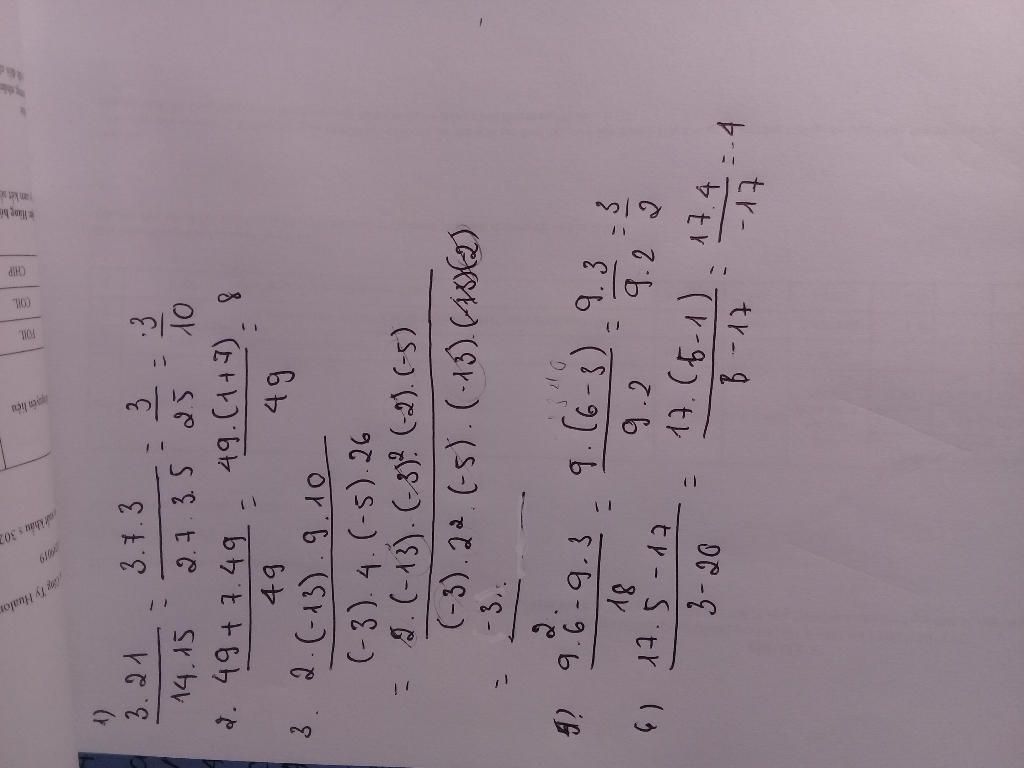 1)
3.21 / 14.15 = 3.7.3 / 2.7.3.5 = 3 / 2.5 = 3 / 10
2. 49 + 7.49 / 49 = 49.(1+7) / 49 = 8
3. 2.(-13).9.10 / (-3).4.(-5).26
= 2.(-13).(-3)².(-2).(-5) / (-3).2².(-5).(-13).
= -3
9.6-9.3 / 18 = 9.(6-3) / 9.2 = 9.3 / 9.2 = 3 / 2
17.5-17 / 3-20 = 17.(5-1) / -17 = 17.4 / -17 = -4
FOIL
COIL
CHIP